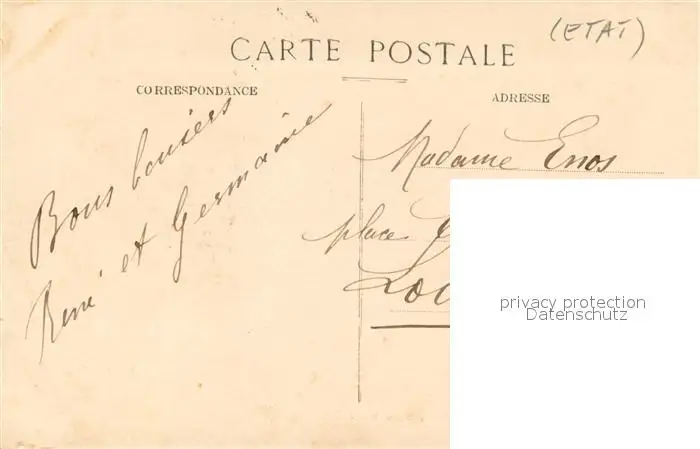 (ETAT)
CARTE POSTALE
CORRESPONDANCE
ADRESSE
Bons baisers
René et Germaine
Madame Enos
place
privacy protection
Datenschutz